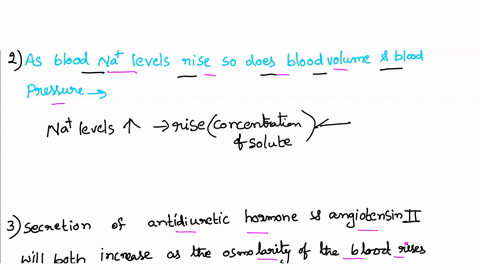 2) As blood Na⁺ levels rise so does blood volume & blood
Pressure →
Na⁺ levels ↑ → rise (concentration
of solute) ←
3) Secretion of antidiuretic hormone & angiotensin II
will both increase as the osmolarity of the blood rises